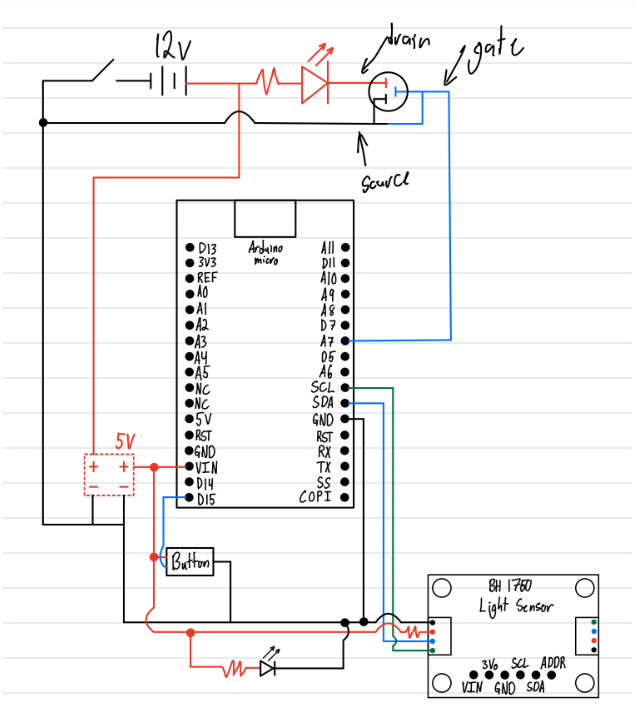 12V
drain
gate
source
Arduino
micro
D13
3V3
REF
A0
A1
A2
A3
A4
A5
NC
NC
5V
RST
GND
VIN
D14
D15
A11
D11
A10
A9
A8
D7
A7
D5
A6
SCL
SDA
GND
RST
RX
TX
SS
COPI
5V
+ +
− −
Button
BH 1750
Light Sensor
3Vo SCL ADDR
VIN GND SDA